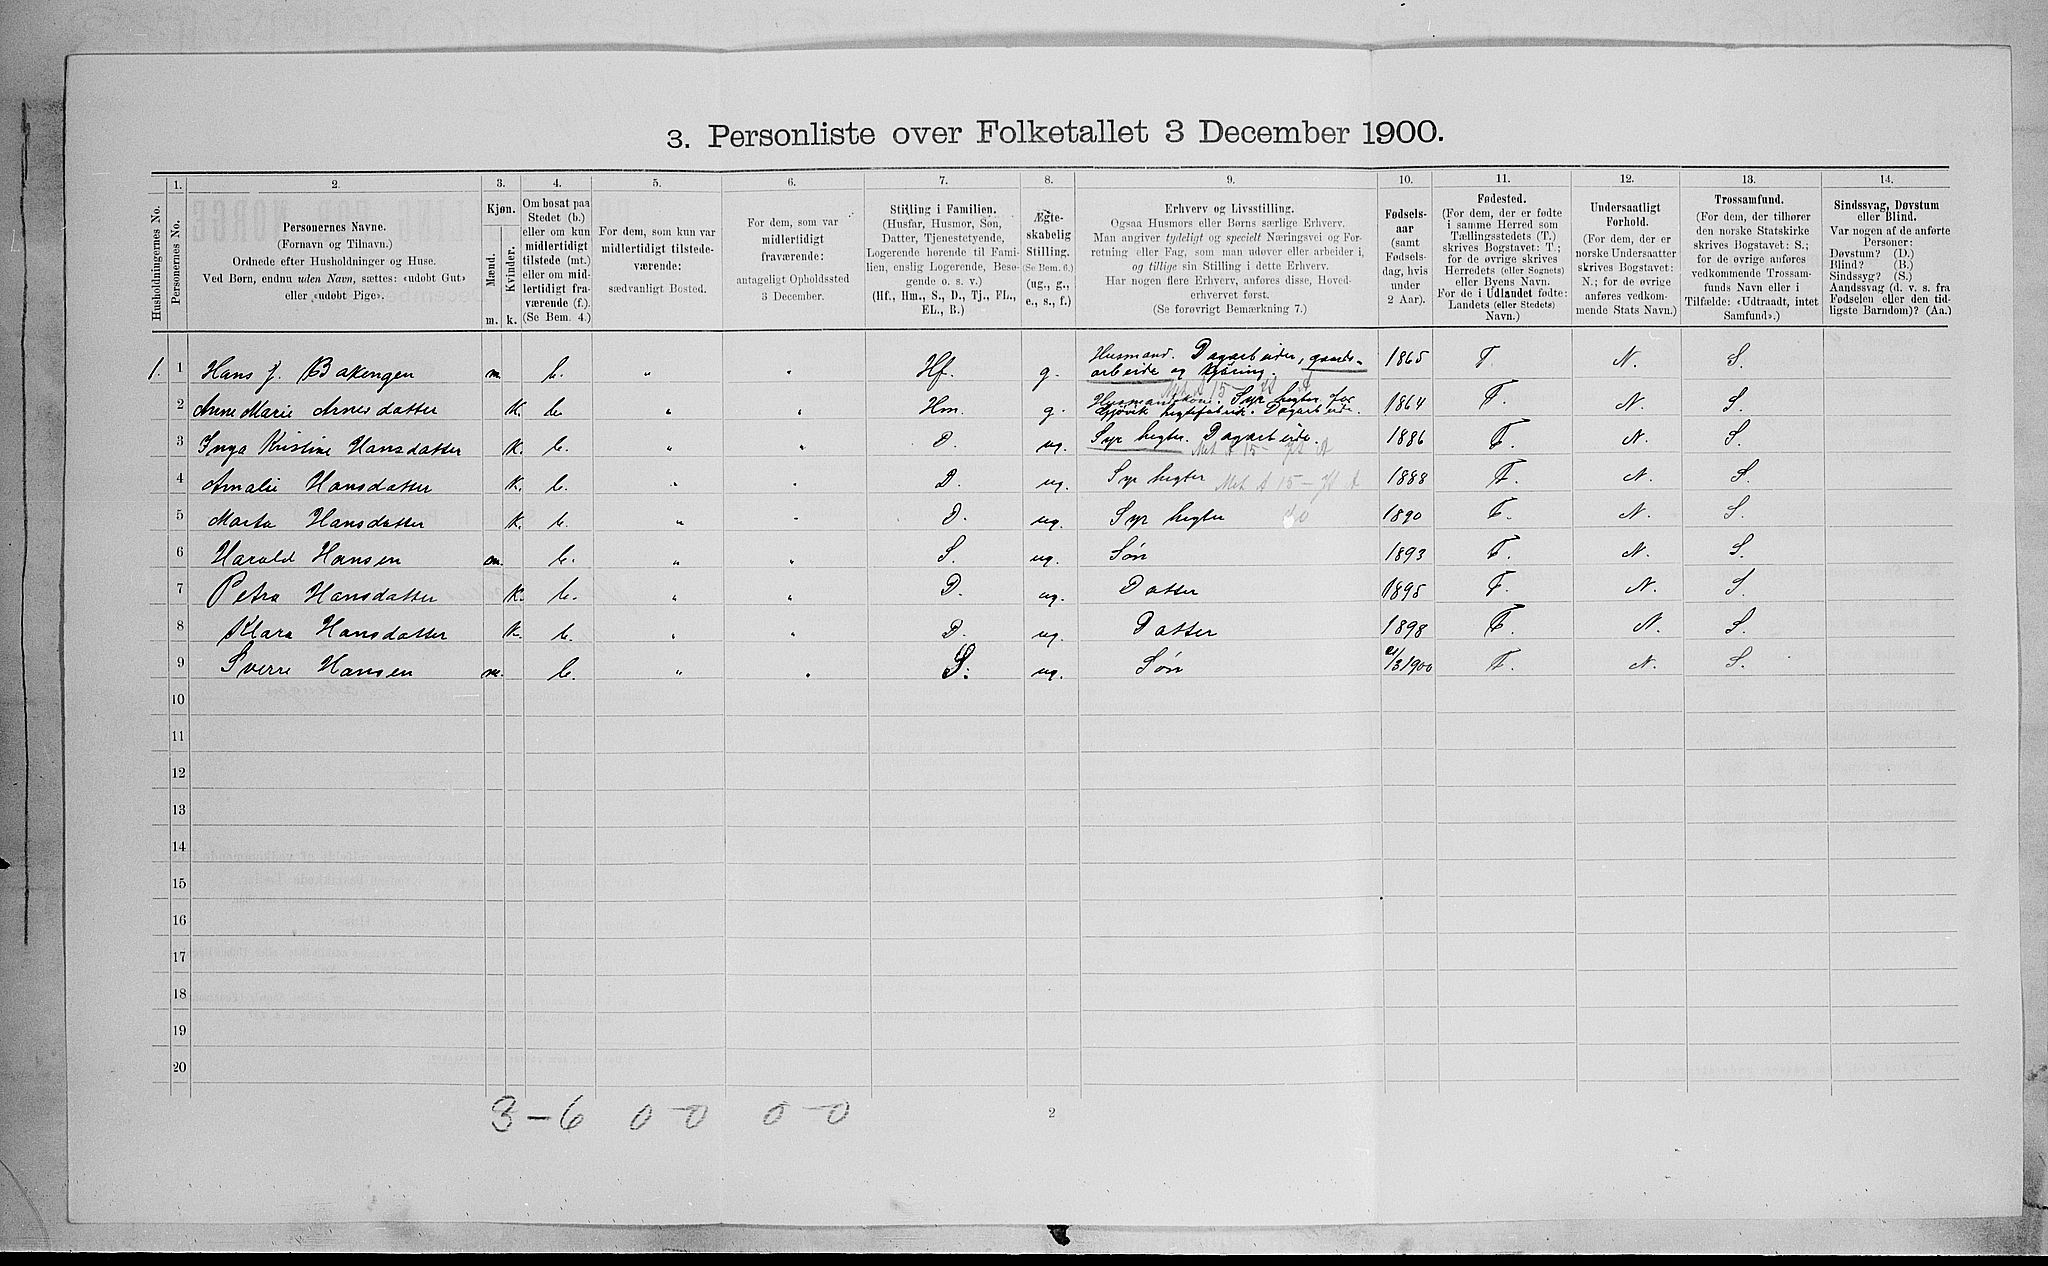 3. Personliste over Folketallet 3 December 1900.
1. 2. 3. 4. 5. 6. 7. 8. 9. 10. 11. 12. 13. 14.
Husholdningernes No.
Personernes No.
Personernes Navne.
(Fornavn og Tilnavn.)
Ordnede efter Husholdninger og Huse.
Ved Børn, endnu uden Navn, sættes: «udøbt Gut»
eller «udøbt Pige».
Kjøn.
Mænd. Kvinder.
m. k.
Om bosat paa
Stedet (b.)
eller om kun
midlertidigt
tilstede (mt.)
eller om mid-
lertidigt fra-
værende (f.)
(Se Bem. 4.)
For dem, som kun var
midlertidigt tilstede-
værende:
sædvanligt Bosted.
For dem, som var
midlertidigt
fraværende:
antageligt Opholdssted
3 December.
Stilling i Familien.
(Husfar, Husmor, Søn,
Datter, Tjenestetyende,
Logerende hørende til Fami-
lien, enslig Logerende, Besø-
gende o. s. v.)
(Hf., Hm., S., D., Tj., FL.,
EL., B.)
Ægte-
skabelig
Stilling.
(Se Bem. 6.)
(ug., g.,
e., s., f.)
Erhverv og Livsstilling.
Ogsaa Husmors eller Børns særlige Erhverv.
Man angiver tydeligt og specielt Næringsvei og For-
retning eller Fag, som man udøver eller arbeider i,
og tillige sin Stilling i dette Erhverv.
Har nogen flere Erhverv, anføres disse, Hoved-
erhvervet først.
(Se forøvrigt Bemærkning 7.)
Fødsels-
aar
(samt
Fødsels-
dag, hvis
under
2 Aar).
Fødested.
(For dem, der er fødte
i samme Herred som
Tællingsstedets (T.)
skrives Bogstavet: T.;
for de øvrige skrives
Herredets (eller Sognets)
eller Byens Navn.
For de i Udlandet fødte:
Landets (eller Stedets)
Navn.)
Undersaatligt
Forhold.
(For dem, der er
norske Undersaatter
skrives Bogstavet:
N.; for de øvrige
anføres vedkom-
mende Stats Navn.)
Trossamfund.
(For dem, der tilhører
den norske Statskirke
skrives Bogstavet: S.;
for de øvrige anføres
vedkommende Trossam-
funds Navn eller i
Tilfælde: «Udtraadt, intet
Samfund».)
Sindssvag, Døvstum
eller Blind.
Var nogen af de anførte
Personer:
Døvstum? (D.)
Blind? (B.)
Sindssyg? (S.)
Aandssvag (d. v. s. fra
Fødselen eller den tid-
ligste Barndom)? (Aa.)
1. 1 Hans J. Bakengen m. b. " " Hf. g. Husmand. Dagarbeider, gaards-
arbeide og kjøring. 1865 T. N. S.
2 Anne Marie Arnesdatter K. b. " " Hm. g. Husmandskone. Syr hegter for
Gjøvik hegtefabrik. Dagarbeide. 1864 T. N. S.
3 Inga Kristine Hansdatter K. b. " " D. ug. Syr hegter. Dagarbeide. 1886 T. N. S.
4 Amalie Hansdatter K. b. " " D. ug. Syr hegter 1888 T. N. S.
5 Marta Hansdatter K. b. " " D. ug. Syr hegter 1890 T. N. S.
6 Harald Hansen m. b. " " S. ug. Søn 1893 T. N. S.
7 Petra Hansdatter K. b. " " D. ug. Datter 1895 T. N. S.
8 Klara Hansdatter K. b. " " D. ug. Datter 1898 T. N. S.
9 Sverre Hansen m. b. " " S. ug. Søn /3 1900 T. N. S.
10
11
12
13
14
15
16
17
18
19
20
3-6 0-0 0-0
2